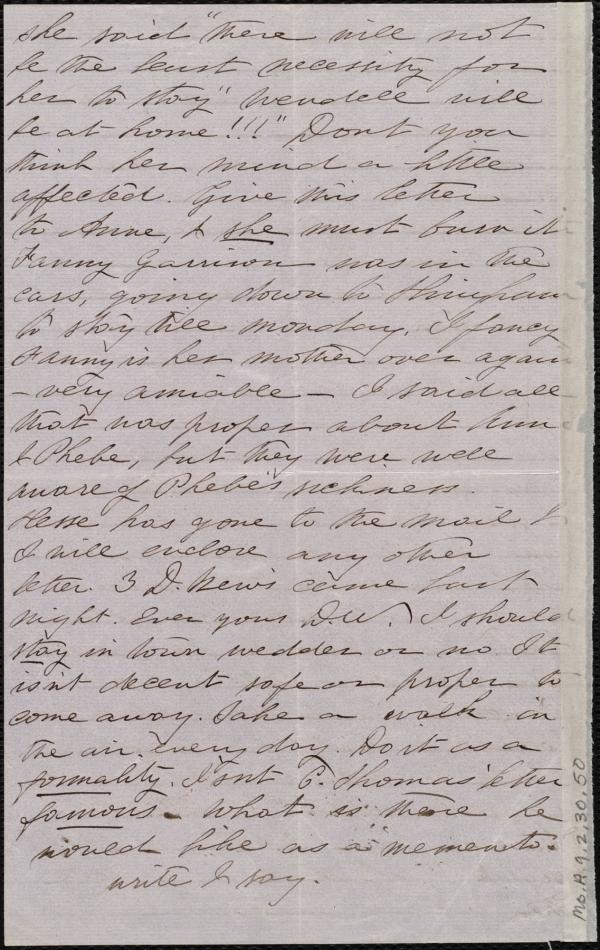 she said "there will not
be the least necessity for
her to stay" wendell will
be at home!!!" Dont you
think her mind a little
affected. Give this letter
to Anne, & she must burn it
Fanny Garrison was in the
cars, going down to Hingham
to stay till monday. I fancy
Fanny is her mother over again
- very amiable - I said all
that was proper about Ann
& Phebe, but they were well
aware of Phebe's sickness.
Hesse has gone to the mail &
I will enclose any other
letter. 3 D. News came last
night. Ever yours D.W.) I should
stay in town wedder or no. It
isn't decent safe or proper to
come away. Take a walk in
the air every day. Do it as a
formality. Isnt C. Thomas' letter
famous - what is there he
would like as a memento.
write I say.
Ms.A.9.2.30.50